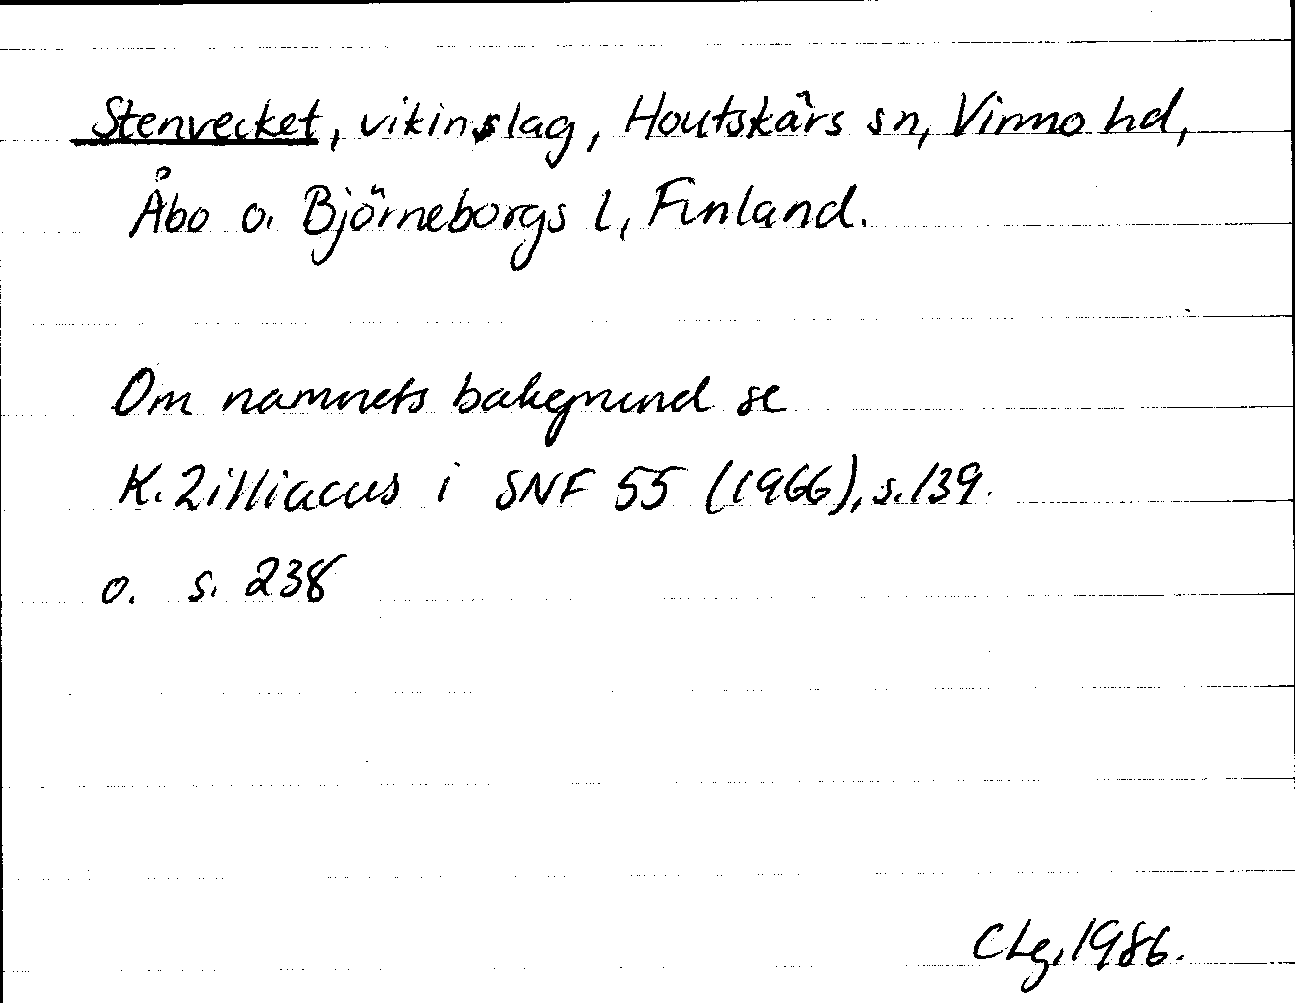 Stenvecket, vikinslag, Houtskärs sn, Virmo hd,
Åbo o. Björneborgs l, Finland.
Om namnets bakgrund se
K. Zilliacus i SNF 55 (1966), s. 139.
o. s. 238
CLg, 1986.